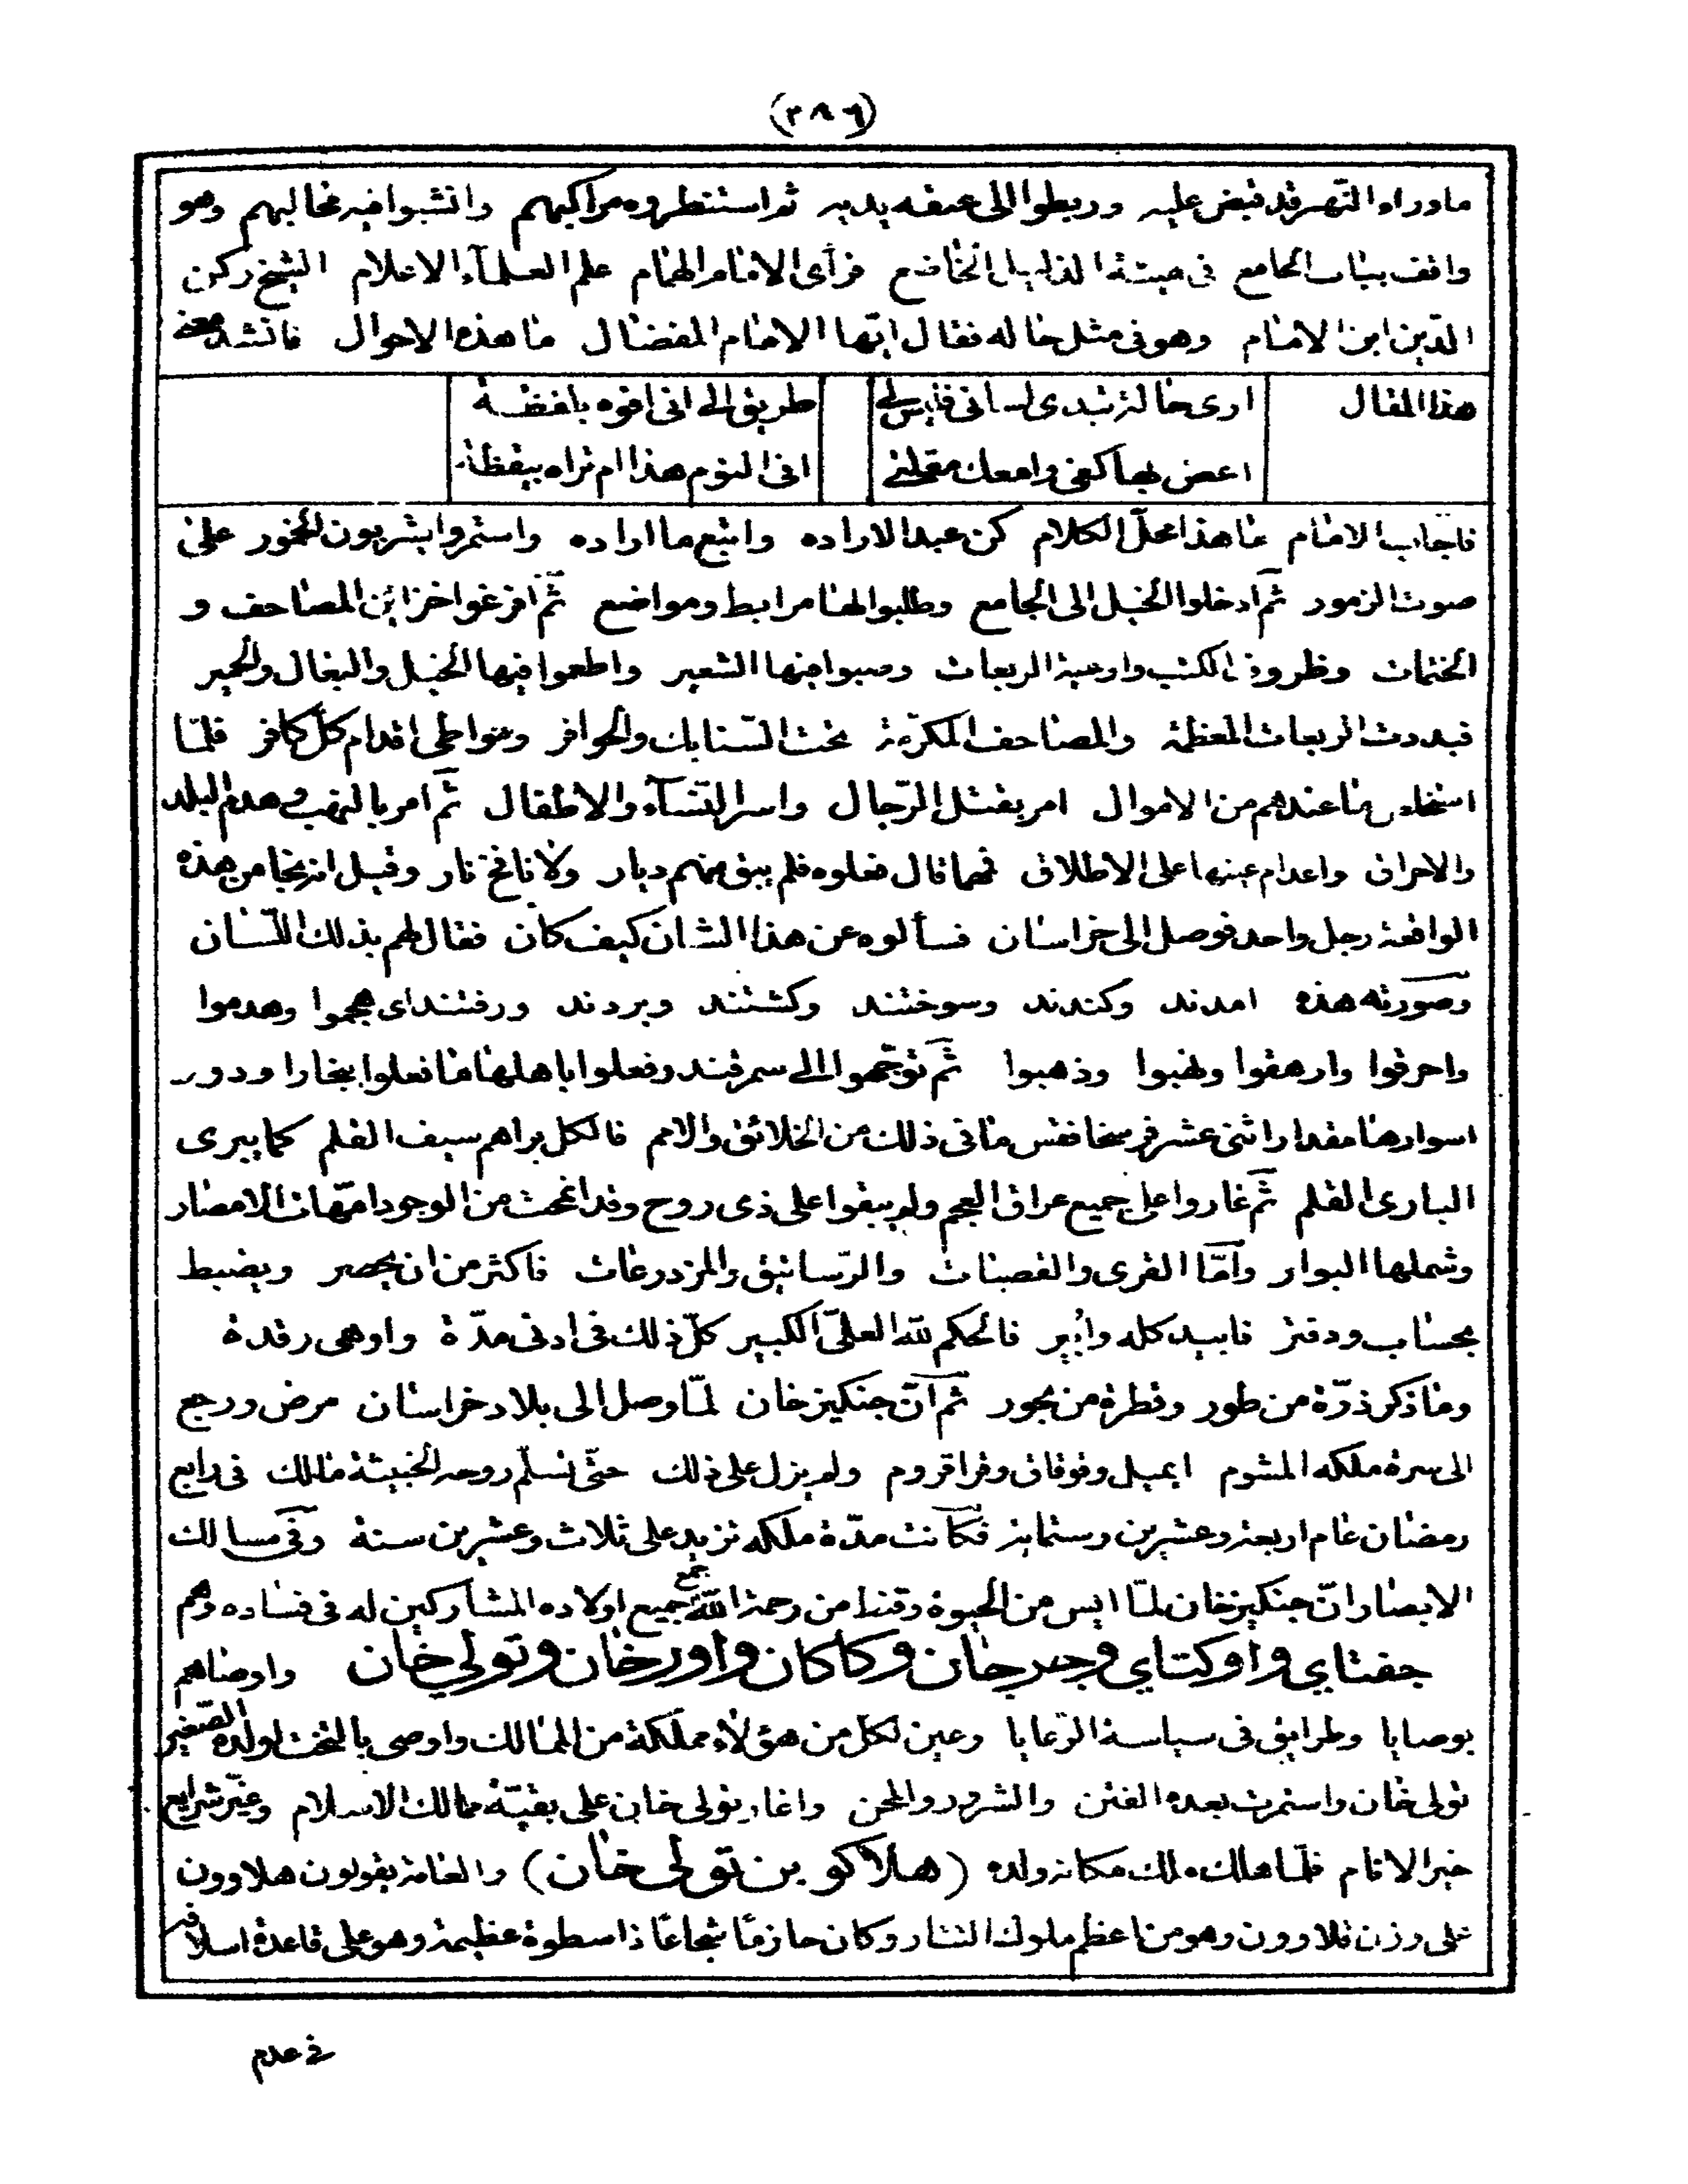 (٢٨٦)
ماوراء النّهر قد قبض عليه وربطوا الى عنقه يديه ثم استنظروه مراكبهم وانشبوا فيه مخاليبهم وهو
واقف بباب الجامع فى هيئة الذليل الخاضع فرأى الامام الهمام علم العلمآء الاعلام الشيخ ركن
الدّين ابن الامام وهو فى مثل حاله فقال ايّها الامام المفضال ما هذه الاحوال فانشد معنى
هذا المقال ارى حالة تبدى لسانى فليس لى طريق الى انى افوه بلفظة
اعض بها كفى وامعك مقلتى افى النوم هذا ام تراه بيقظة
فاجاب الامام ما هذا محلّ الكلام كن عبد الاراده واتبع ما اراده واستمروا يشربون الخمور على
صوت الزمور ثمّ ادخلوا الخيل الى الجامع وطلبوا لها مرابط ومواضع ثمّ افرغوا خزائن المصاحف و
الختمات وظروف الكتب واوعية الربعات وصبوا فيها الشعير واطعموا فيها الخيل والبغال والحمير
فبددت الربعات المعظمة والمصاحف المكرّمة تحت السّنابك والحوافر ومواطى اقدام كلّ كافر فلمّا
استخلص ما عندهم من الاموال امر بقتل الرّجال واسر النّسآء والاطفال ثمّ امر بالنهب وهدم البلد
والاحراق واعدام عينها على الاطلاق فمهما قال فعلوه فلم يبق منهم ديار ولا نافخ نار وقيل انه نجا من هذه
الواقعة رجل واحد فوصل الى خراسان فسألوه عن هذا الشان كيف كان فقال لهم بذلك اللّسان
وصورته هذه امدند وكندند وسوختند وكشتند وبردند ورفتند اى هجموا وهدموا
واحرقوا وارهقوا ونهبوا وذهبوا ثمّ توجّهوا الى سمرقند وفعلوا باهلها ما فعلوا ببخارا ودور
اسوارها مقدار اثنى عشر فرسخا فقس ما فى ذلك من الخلائق والامم فالكل براهم سيف القلم كما يبرى
البارى القلم ثمّ غاروا على جميع عراق العجم ولم يبقوا على ذى روح وقد انمحت من الوجود امّهات الامصار
وشملها البوار وامّا القرى والقصبات والرّساتيق والمزدرعات فاكثر من ان يحصر ويضبط
بحساب ودفتر فابيد كله وابير فالحكم لله العلىّ الكبير كلّ ذلك فى ادنى مدّة واوهى رقدة
وما ذكر ذرّة من طور وقطرة من بحور ثمّ انّ جنكيز خان لمّا وصل الى بلاد خراسان مرض ورجع
الى سرة ملكه المشوم ايميل وقوقاق وقراقروم ولم يزل على ذلك حتّى تسلّم روحه الخبيثة مالك فى رابع
رمضان عام اربعة وعشرين وستمايه فكانت مدّة ملكه تزيد على ثلاث وعشرين سنة وفى مسالك
الابصار انّ جنكيز خان لمّا ايس من الحيوة وقنط من رحمة اللّٰه جمع جميع اولاده المشاركين له فى فساده وهم
جفتاي واوكتاي وجرجان وكاكان واورخان وتولي خان واوصاهم
بوصايا وطرايق فى سياسة الرّعايا وعين لكل من هؤلاء مملكة من الممالك واوصى بالتخت لولده الصّغير
تولى خان واستمرت بعده الفتن والشرور والمحن واغار تولى خان على بقيّة ممالك الاسلام وغيّر شرايع
خير الانام فلمّا هلك ملك مكانه ولده (هلاكو بن تولى خان) والعامة يقولون هلاوون
على وزن قلاوون وهو من اعظم ملوك التتار وكان حازمًا شجاعًا ذا سطوة عظيمة وهو على قاعدة اسلافه
فى عدم